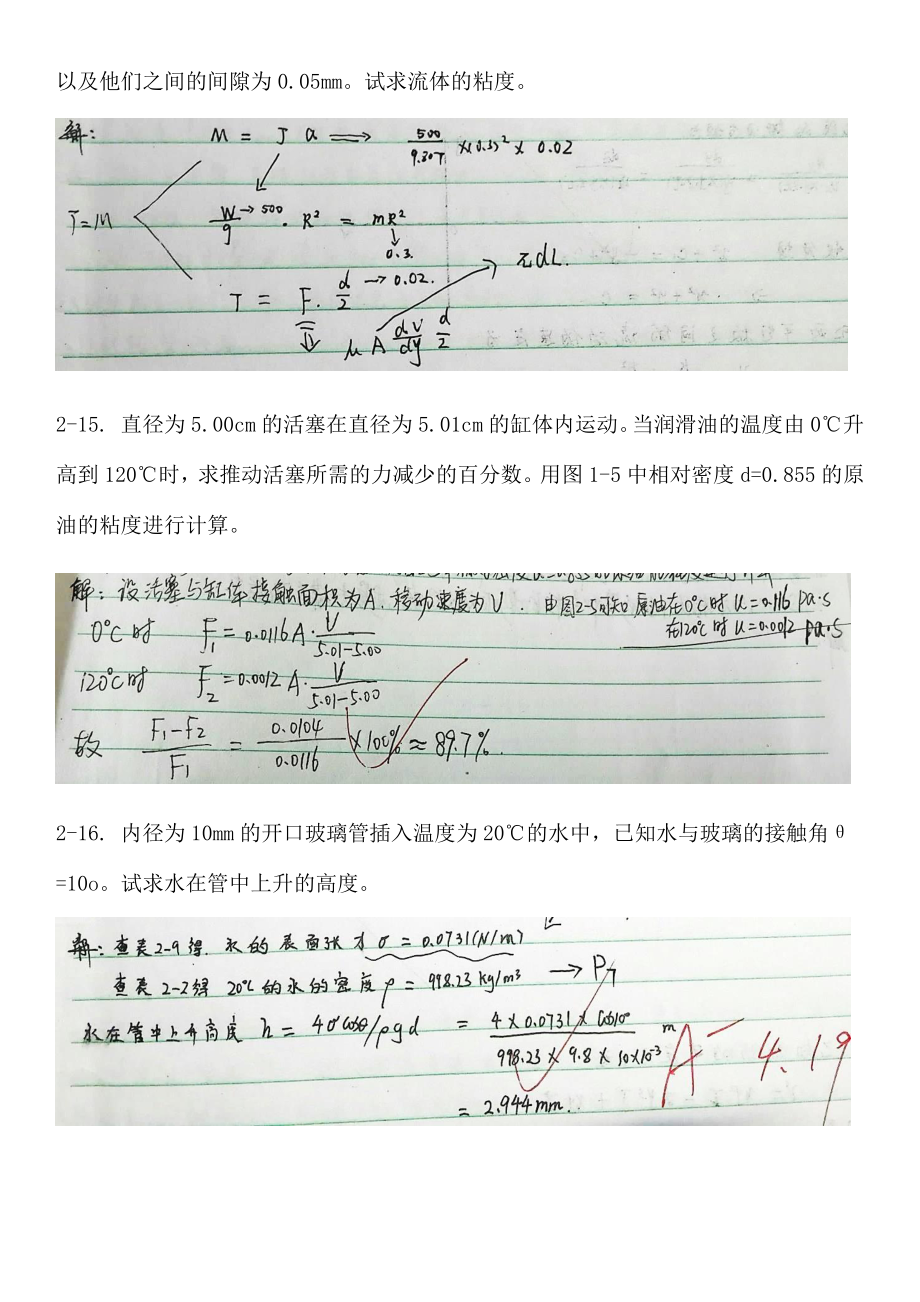 以及他们之间的间隙为0.05mm。试求流体的粘度。
解:
M = J α ⟹ 500/9.807 × (0.3)² × 0.02
J=M
W/g → 500 · R² = mR²
0.3.
T = F. d/2 → 0.02. πdL.
μ A dv/dy d/2
2-15. 直径为5.00cm的活塞在直径为5.01cm的缸体内运动。当润滑油的温度由0℃升
高到120℃时，求推动活塞所需的力减少的百分数。用图1-5中相对密度d=0.855的原
油的粘度进行计算。
解：设活塞与缸体接触面积为A，移动速度为V. 由图2-5可知原油在0℃时u=0.116 pa·s
在120℃时u=0.0012 pa·s
0℃时 F₁=0.0116A·V/5.01-5.00
120℃时 F₂=0.0012A·V/5.01-5.00
故 F₁-F₂/F₁ = 0.0104/0.0116 ×100% ≈ 89.7%.
2-16. 内径为10mm的开口玻璃管插入温度为20℃的水中，已知水与玻璃的接触角θ
=10o。试求水在管中上升的高度。
解：查表2-9得. 水的表面张力σ = 0.0731(N/m)
查表2-2得 20℃的水的密度ρ = 998.23 kg/m³ → P7
水在管中上升高度 h = 4σcosθ/ρgd = 4×0.0731×cos10°/998.23×9.8×10×10⁻³ m
= 2.944mm.
A⁻ 4.19